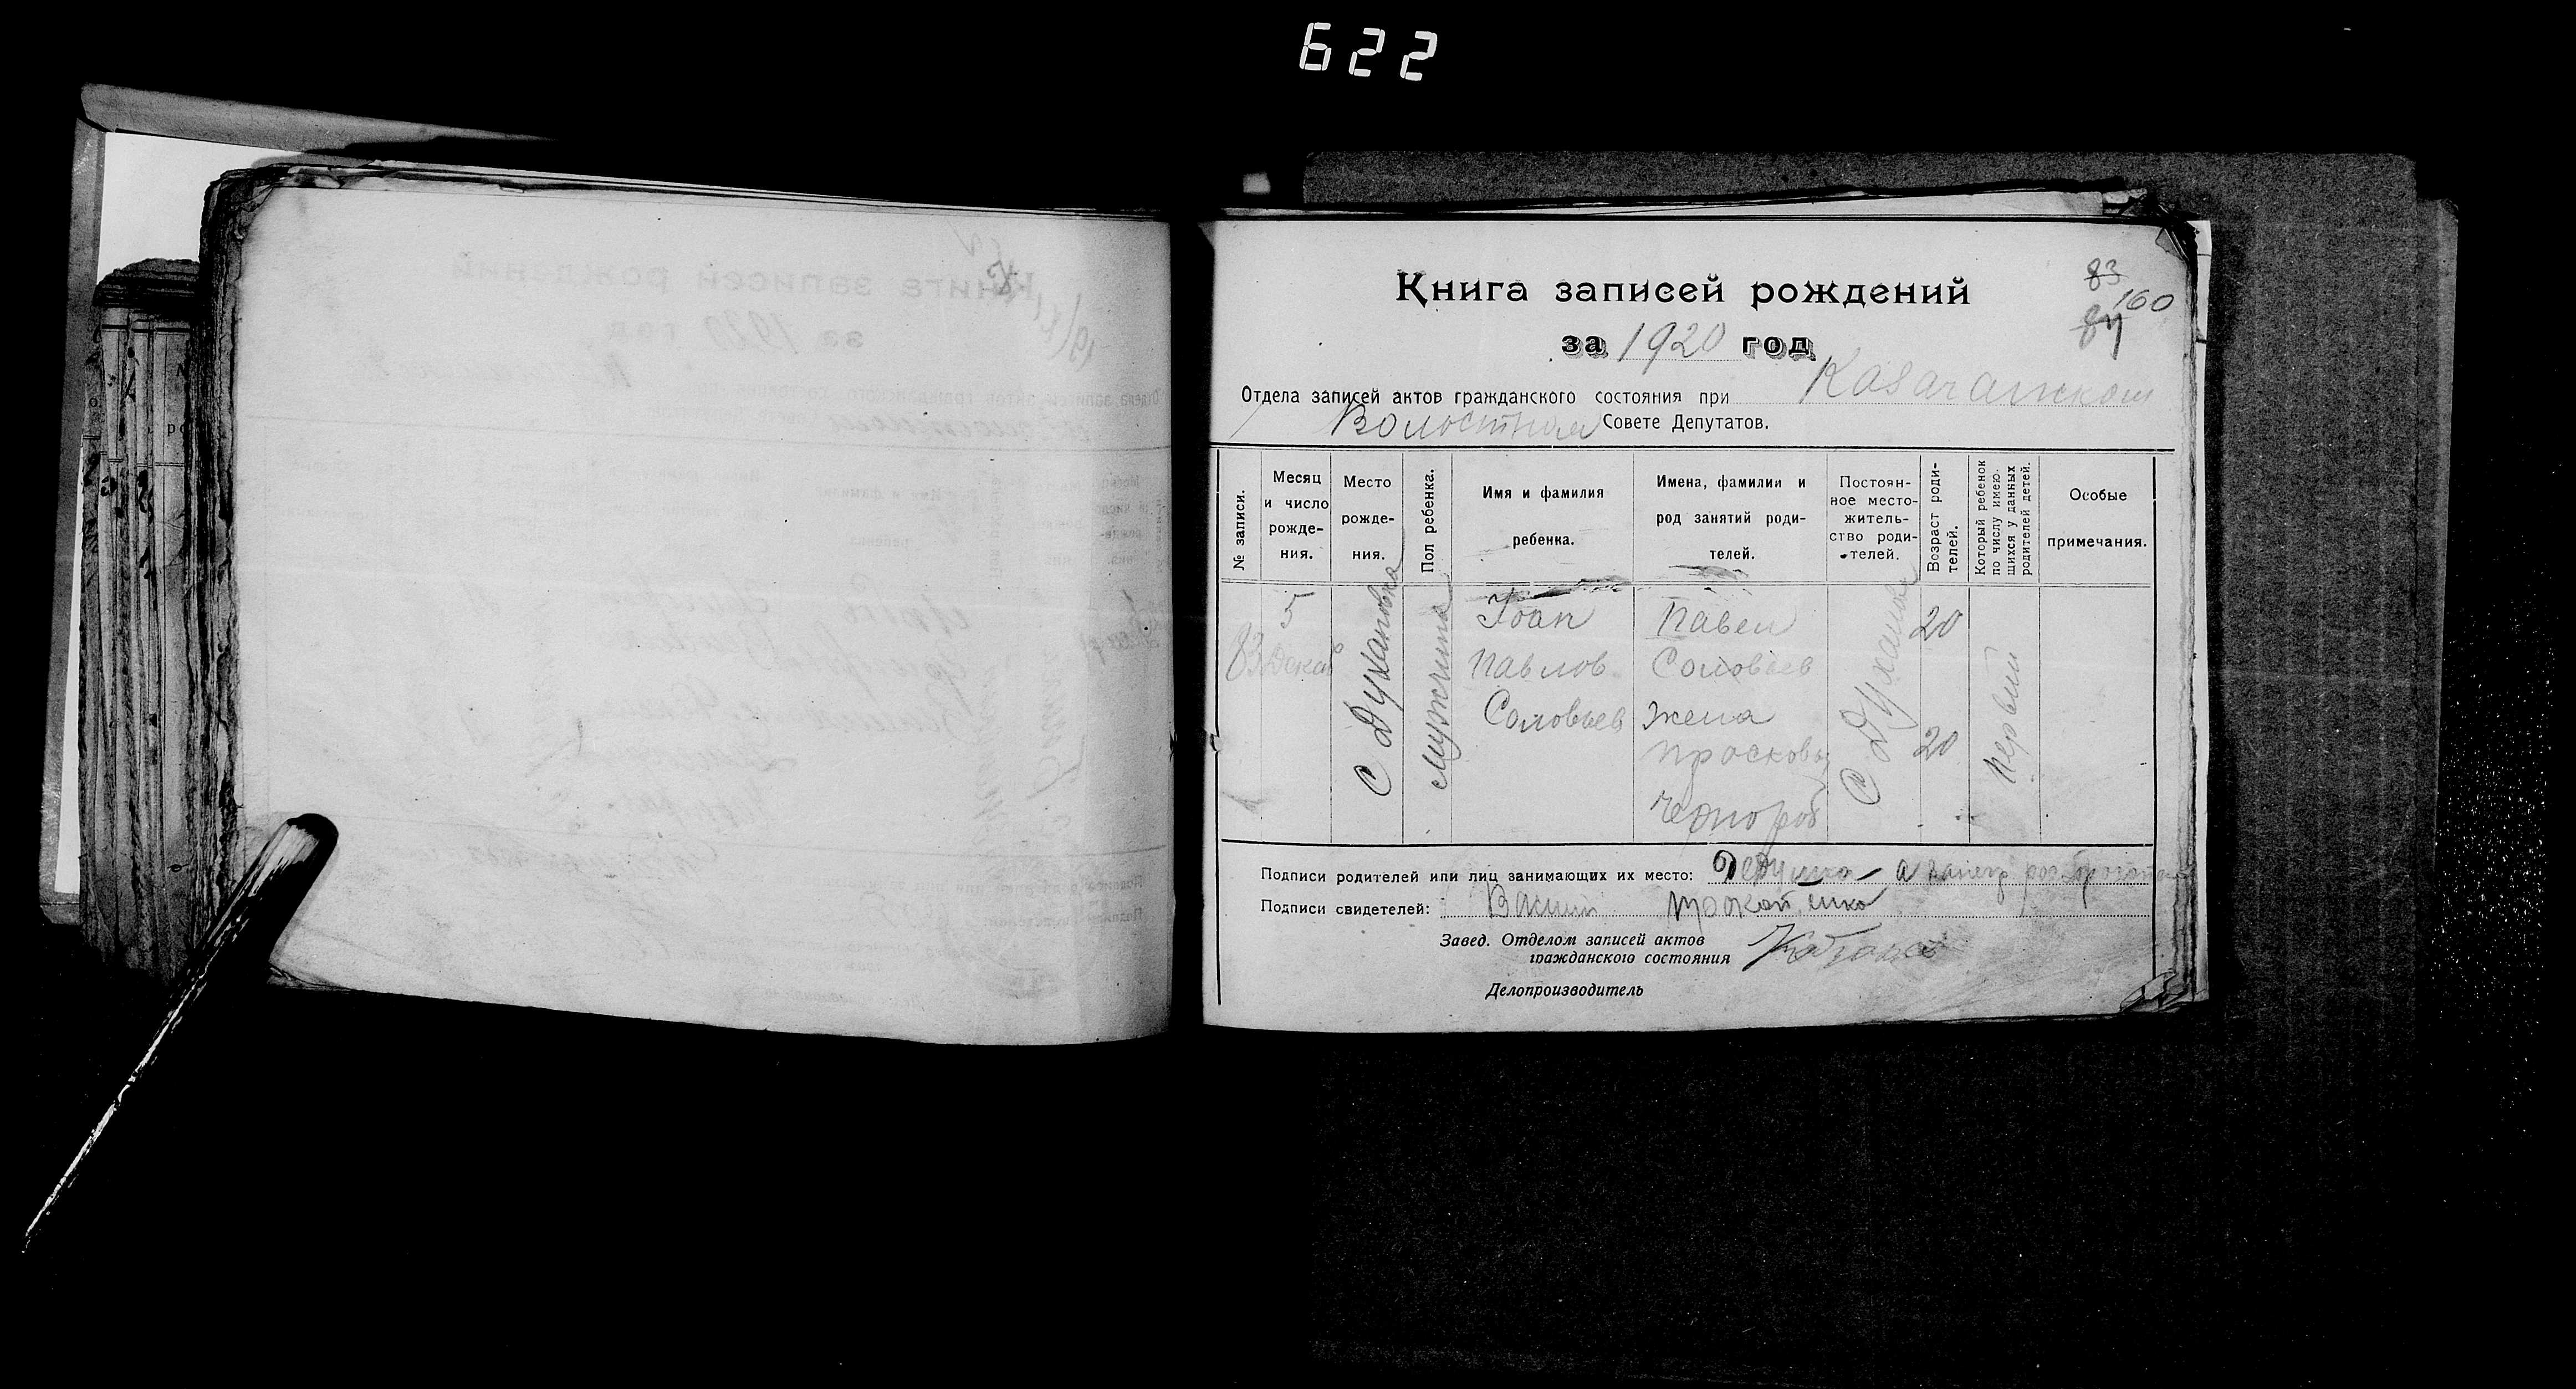 622
83
160
84
Книга записей рождений
за 1920 год
Отдела записей актов гражданского состояния при
Совете Депутатов.
№ записи.
Месяц и число рожде- ния.
Место рожде- ния.
Пол ребенка.
Имя и фамилия ребенка.
Имена, фамилии и род занятий роди- телей.
Постоян- ное место- житель- ство роди- телей.
Возраст роди- телей.
Который ребенок по числу имею- щихся у данных родителей детей.
Особые примечания.
83
5
Декаб
С Духановка
Мужчина
Іоан
Павлов
Соловьев
Павел
Соловьев
Жена
Просковья
Чернороб
С Духановка
20
20
Первый
Подписи родителей или лиц занимающих их место:
Подписи свидетелей:
Завед. Отделом записей актов
гражданского состояния
Делопроизводитель